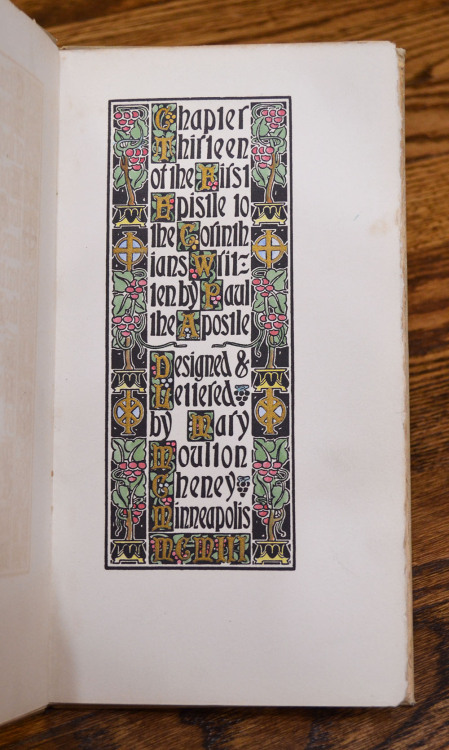 Chapter
Thirteen
of the First
Epistle to
the Corinth
ians Writ=
ten by Paul
the Apostle
Designed &
Lettered
by Mary
Moulton
Cheney
Minneapolis
MCMIII